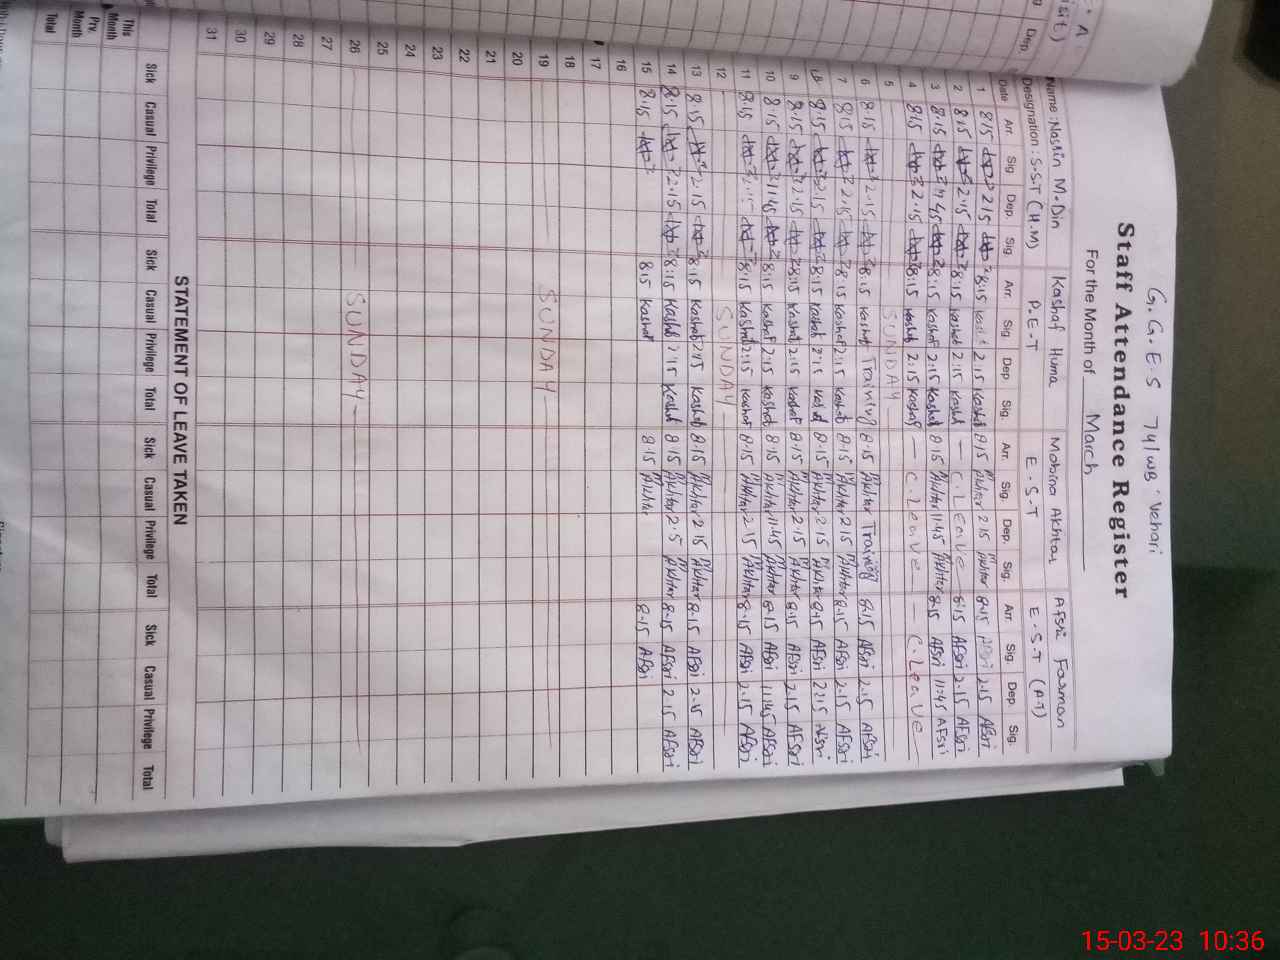 G.G.E.S 74/WB. Vehari
Staff Attendance Register
For the Month of March
Name: M.Din Kashaf Huma Mobina Akhtar Afsri Farman
Designation: S.S.T (H.M) P.E.T E.S.T E.S.T (A.I)
Date Arr. Sig. Dep. Sig. Arr. Sig. Dep. Sig. Arr. Sig. Dep. Sig. Arr. Sig. Dep. Sig.
1 8:15 2:15 8:15 2:15 Kashaf 8:15 Akhtar 2:15 Akhtar 8:15 Afsri 2:15 Afsri
2 8:15 2:15 8:15 Kashaf 2:15 Kashaf — C.Leave — 8:15 Afsri 2:15 Afsri
3 8:15 11:45 8:15 Kashaf 2:15 Kashaf 8:15 Akhtar 11:45 Akhtar 8:15 Afsri 11:45 Afsri
4 8:15 2:15 8:15 Kashaf 2:15 Kashaf — C.Leave — C.Leave —
5 SUNDAY
6 8:15 2:15 8:15 Kashaf Training 8:15 Akhtar Training 8:15 Afsri 2:15 Afsri
7 8:15 2:15 8:15 Kashaf 2:15 Kashaf 8:15 Akhtar 2:15 Akhtar 8:15 Afsri 2:15 Afsri
8 8:15 2:15 8:15 Kashaf 2:15 Kashaf 8:15 Akhtar 2:15 Akhtar 8:15 Afsri 2:15 Afsri
9 8:15 2:15 8:15 Kashaf 2:15 Kashaf 8:15 Akhtar 2:15 Akhtar 8:15 Afsri 2:15 Afsri
10 8:15 11:45 8:15 Kashaf 2:15 Kashaf 8:15 Akhtar 11:45 Akhtar 8:15 Afsri 11:45 Afsri
11 8:15 8:15 Kashaf 2:15 Kashaf 8:15 Akhtar 2:15 Akhtar 8:15 Afsri 2:15 Afsri
12 SUNDAY
13 8:15 2:15 8:15 Kashaf 2:15 Kashaf 8:15 Akhtar 2:15 Akhtar 8:15 Afsri 2:15 Afsri
14 8:15 2:15 8:15 Kashaf 2:15 Kashaf 8:15 Akhtar 2:15 Akhtar 8:15 Afsri 2:15 Afsri
15 8:15 8:15 Kashaf 8:15 Akhtar 8:15 Afsri
16
17
18
19 SUNDAY
20
21
22
23
24
25
26 SUNDAY
27
28
29
30
31
STATEMENT OF LEAVE TAKEN
Sick Casual Privilege Total Sick Casual Privilege Total Sick Casual Privilege Total Sick Casual Privilege Total
This Month
Prv. Month
Total
15-03-23 10:36